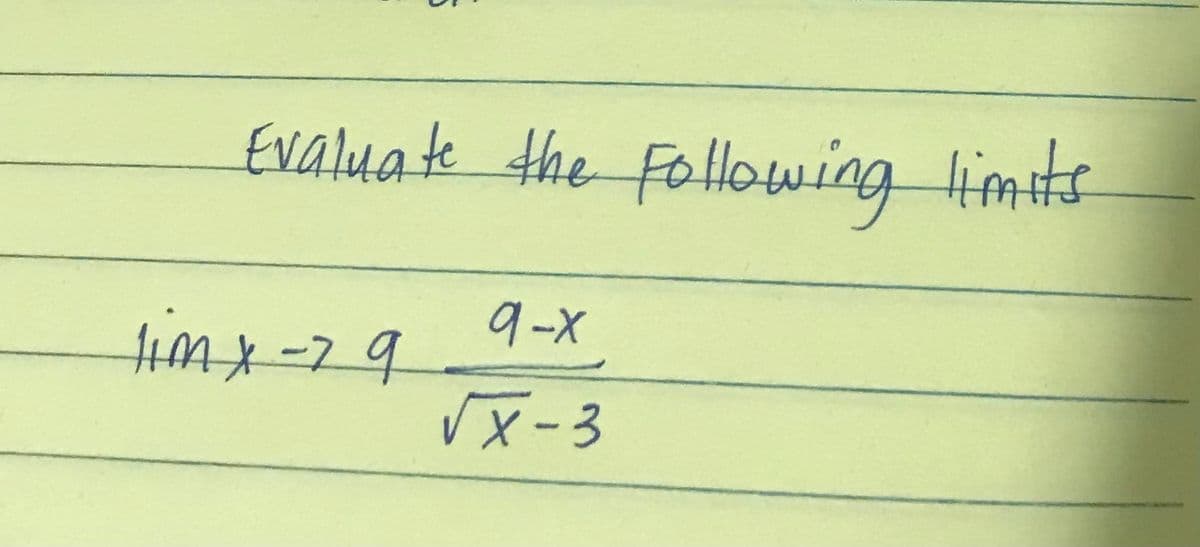 Evaluate the Following limits
lim x -> 9 9-x
√x - 3